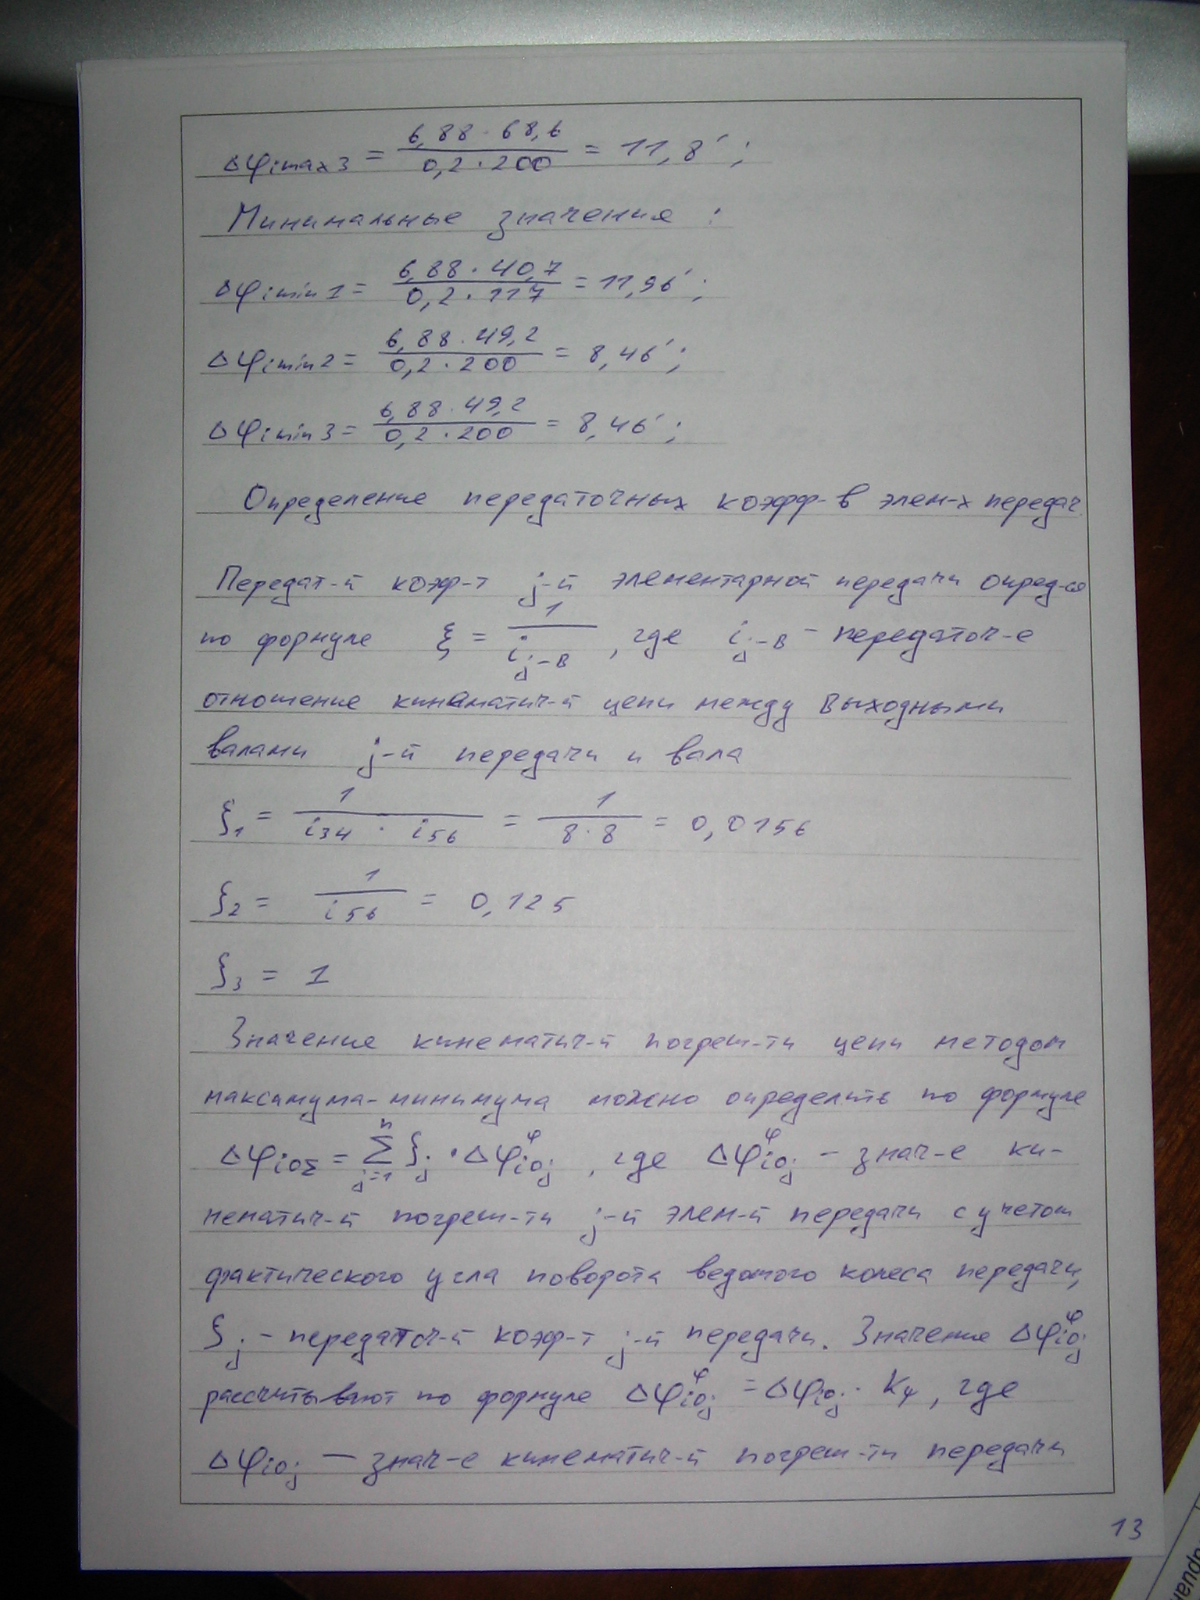 Δφimax3 = 6,88·68,6 / 0,2·200 = 11,8′;
Минимальные значения:
Δφimin1 = 6,88·40,7 / 0,2·117 = 11,96′;
Δφimin2 = 6,88·49,2 / 0,2·200 = 8,46′;
Δφimin3 = 6,88·49,2 / 0,2·200 = 8,46′;
Определение передаточных коэфф-в элем-х передач
Передат-й коэф-т j-й элементарной передачи опред-ся
по формуле ξ = 1 / ij-в, где ij-в – передаточ-е
отношение кинематич-й цепи между выходными
валами j-й передачи и вала
ξ1 = 1 / i34 · i56 = 1 / 8·8 = 0,0156
ξ2 = 1 / i56 = 0,125
ξ3 = 1
Значение кинематич-й погреш-ти цепи методом
максимума-минимума можно определить по формуле
ΔφiоΣ = Σ(j=1, n) ξj · Δφiоj^φ, где Δφiоj^φ – знач-е ки-
нематич-й погреш-ти j-й элем-й передачи с учетом
фактического угла поворота ведомого колеса передачи,
ξj – передаточ-й коэф-т j-й передачи. Значение Δφiоj^φ
рассчитывают по формуле Δφiоj^φ = Δφiоj · Kφ, где
Δφiоj — знач-е кинематич-й погреш-ти передачи
13